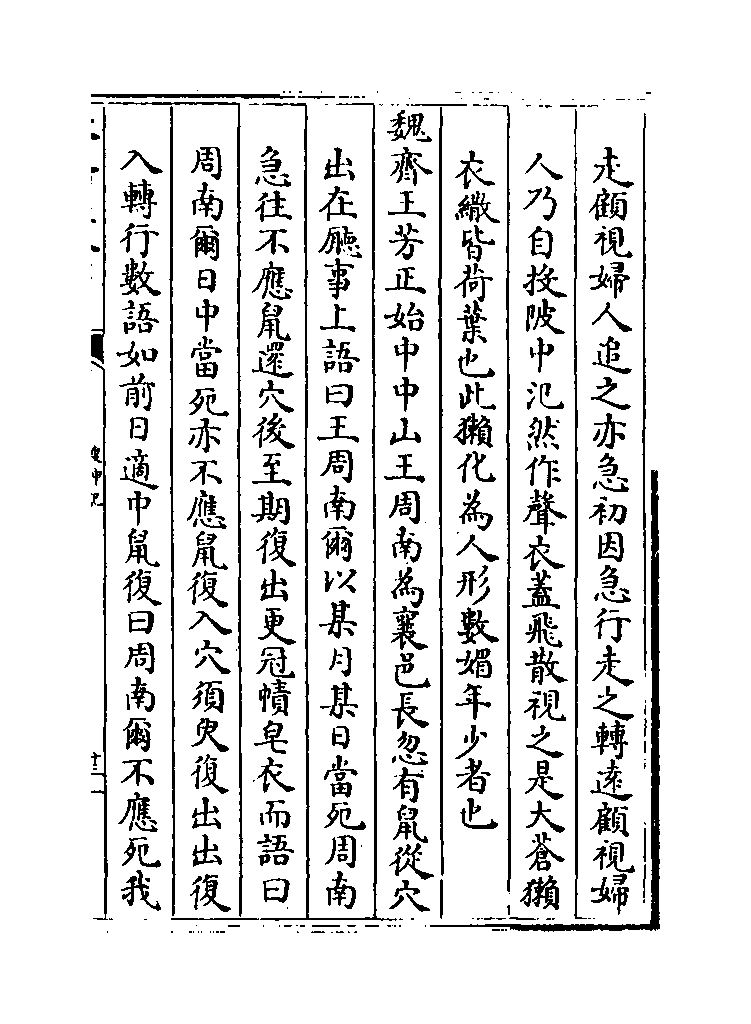 走顧視婦人追之亦急初因急行走之轉遠顧視婦
人乃自投陂中汜然作聲衣蓋飛散視之是大蒼獺
衣繖皆荷葉也此獺化為人形數媚年少者也
魏齊王芳正始中中山王周南為襄邑長忽有鼠從穴
出在廳事上語曰王周南爾以某月某日當死周南
急往不應鼠還穴後至期復出更冠幘皂衣而語曰
周南爾日中當死亦不應鼠復入穴須臾復出出復
入轉行數語如前日適中鼠復曰周南爾不應死我
搜神記
十二